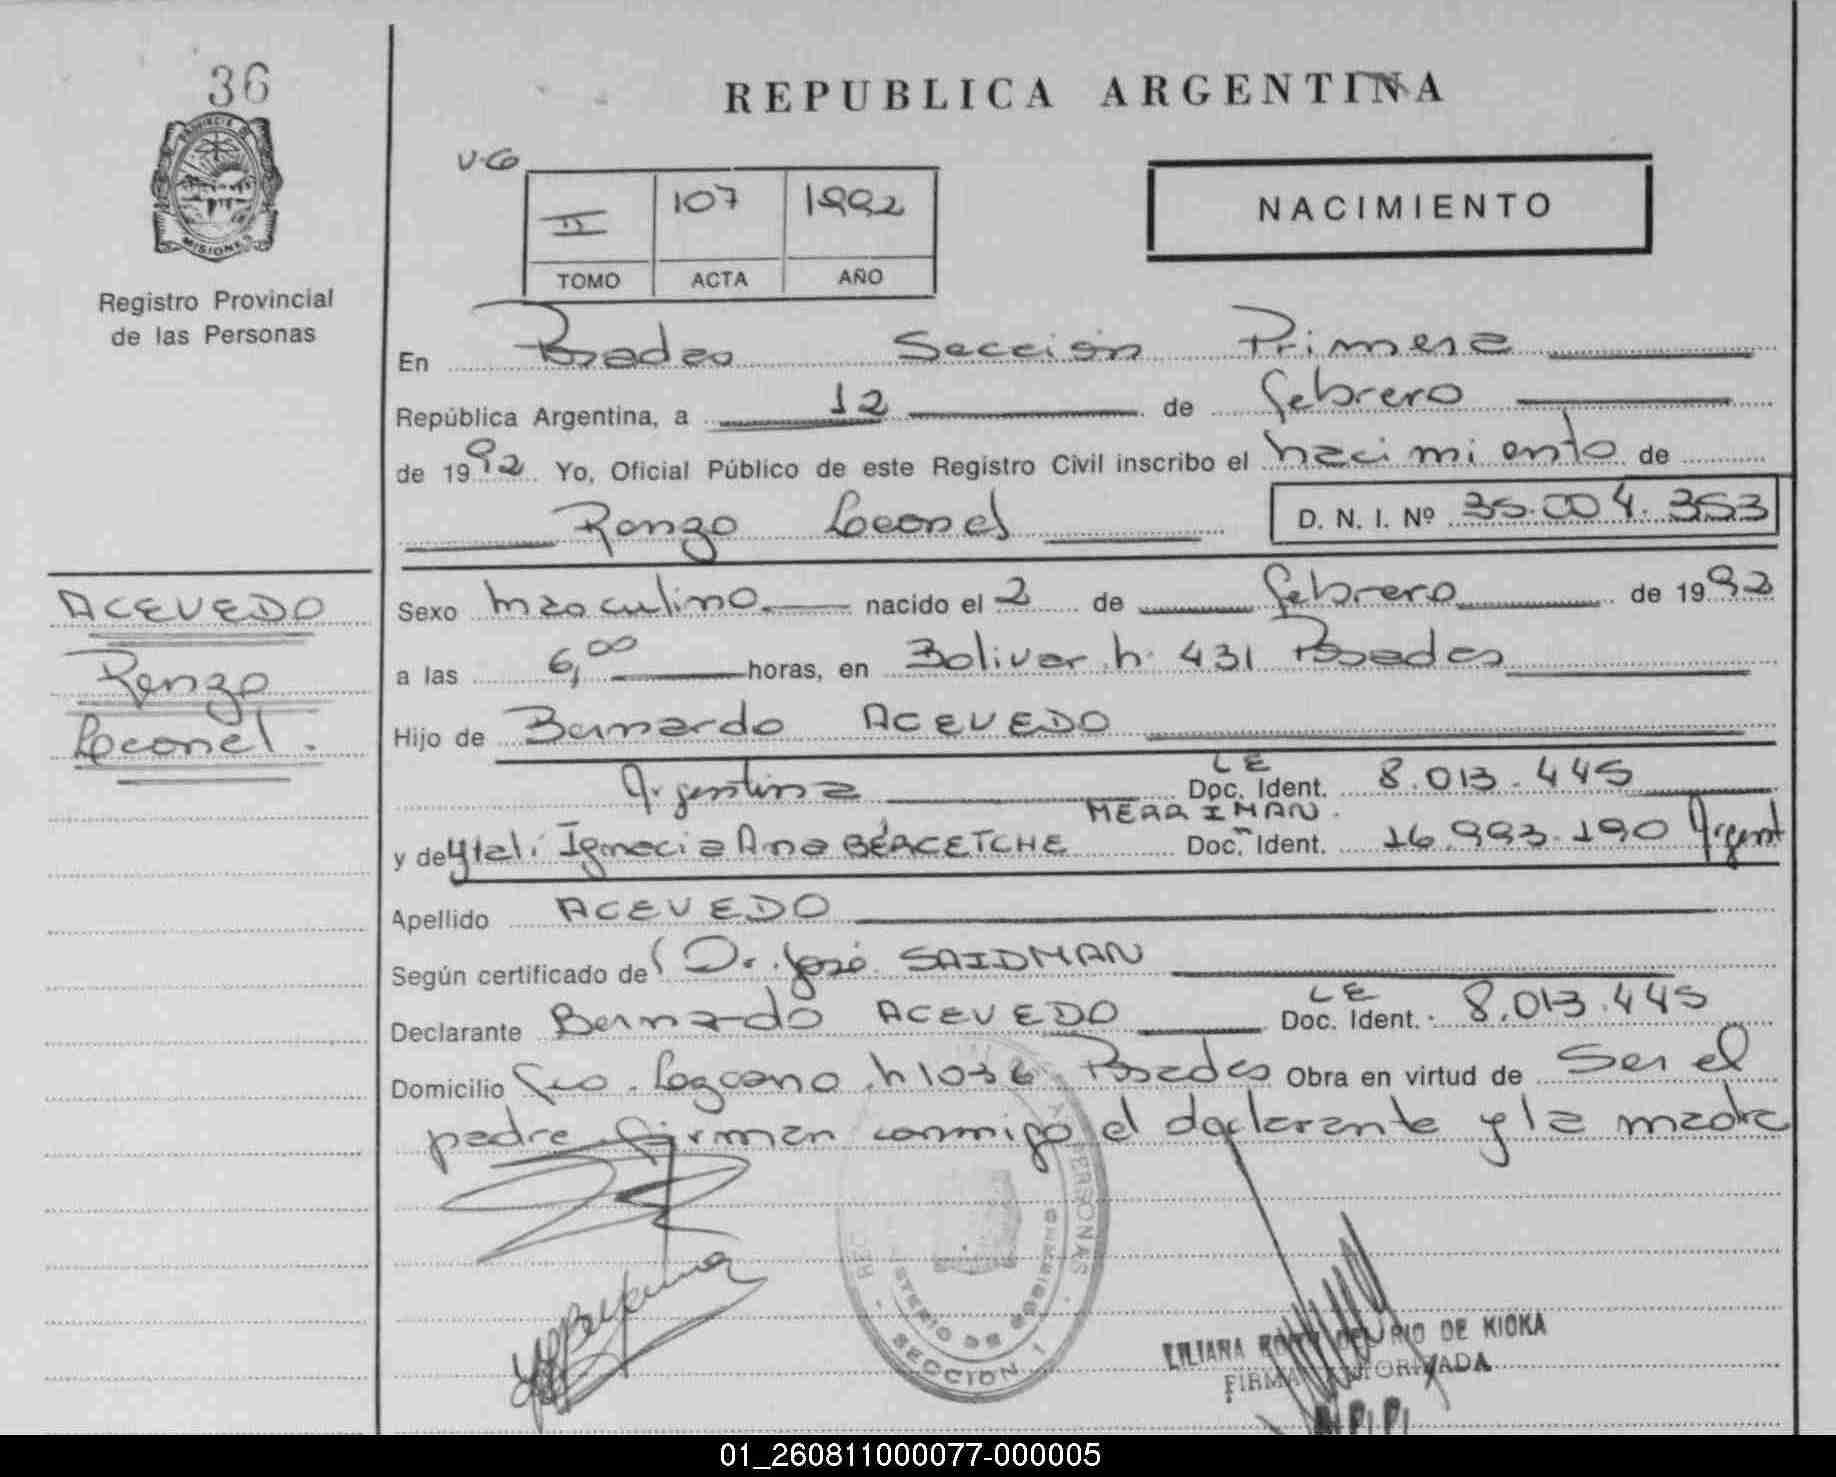 36
PROVINCIA DE
MISIONES
Registro Provincial
de las Personas
REPUBLICA ARGENTINA
V-6
II 107 1992
TOMO ACTA AÑO
NACIMIENTO
En Posadas Sección Primera
República Argentina, a 12 de febrero
de 1992 Yo, Oficial Público de este Registro Civil inscribo el nacimiento de
Renzo Leonel D. N. I. Nº 35.004.353
Sexo masculino nacido el 2 de febrero de 1992
a las 6,00 horas, en Bolivar n. 431 Posadas
Hijo de Bernardo ACEVEDO
Argentina LE Doc. Ident. 8.013.445
MERRIMAN.
y de Ytatí Ignacia Ana BERCETCHE Doc. Ident. 16.993.190 Argent
Apellido ACEVEDO
Según certificado de Dr. José SAIDMAN
Declarante Bernardo ACEVEDO LE Doc. Ident. 8.013.445
Domicilio Lozcano n 1036 Posadas Obra en virtud de Ser el
padre firman conmigo el declarante y la madre
ACEVEDO
Renzo
Leonel.
PERSONAS
MINISTERIO DE GOBIERNO
SECCION 1
LILIANA DEL RIO DE KIOKA
FIRMA AUTORIZADA
01_260811000077-000005